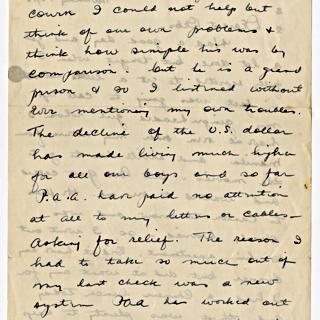 course I could not help but
think of our own problems &
think how simple his was by
comparison. but he is a grand
person & so I listened without
ever mentioning my own troubles.
The decline of the U.S. dollar
has made living much higher
for all our boys and so far
P.A.A. have paid no attention
at all to my letters or cables—
asking for relief. The reason I
had to take so much out of
my last check was a new
system PAA has worked out